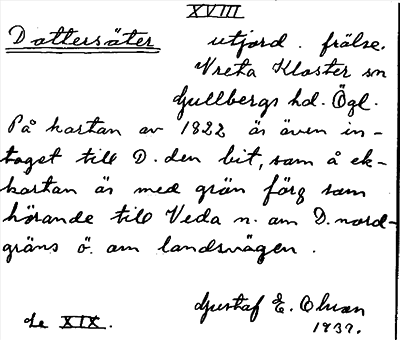 XVIII
Dottersäter utjord. frälse.
Vreta Kloster sn
Gullbergs hd. Ögl.
På kartan av 1822 är även in-
taget till D. den bit, som å ek-
kartan är med grön färg som
hörande till Veda n. om D. nord-
gräns ö. om landsvägen.
Gustaf E. Olsson
de XIX. 1937.